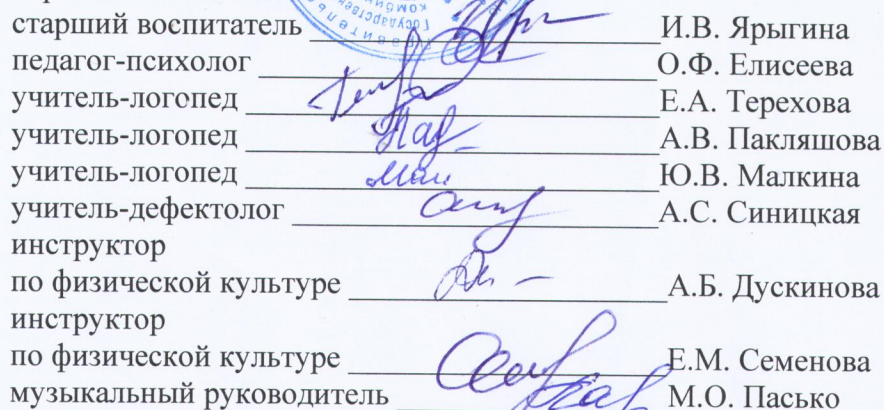 старший воспитатель И.В. Ярыгина
педагог-психолог О.Ф. Елисеева
учитель-логопед Е.А. Терехова
учитель-логопед А.В. Пакляшова
учитель-логопед Ю.В. Малкина
учитель-дефектолог А.С. Синицкая
инструктор
по физической культуре А.Б. Дускинова
инструктор
по физической культуре Е.М. Семенова
музыкальный руководитель М.О. Пасько